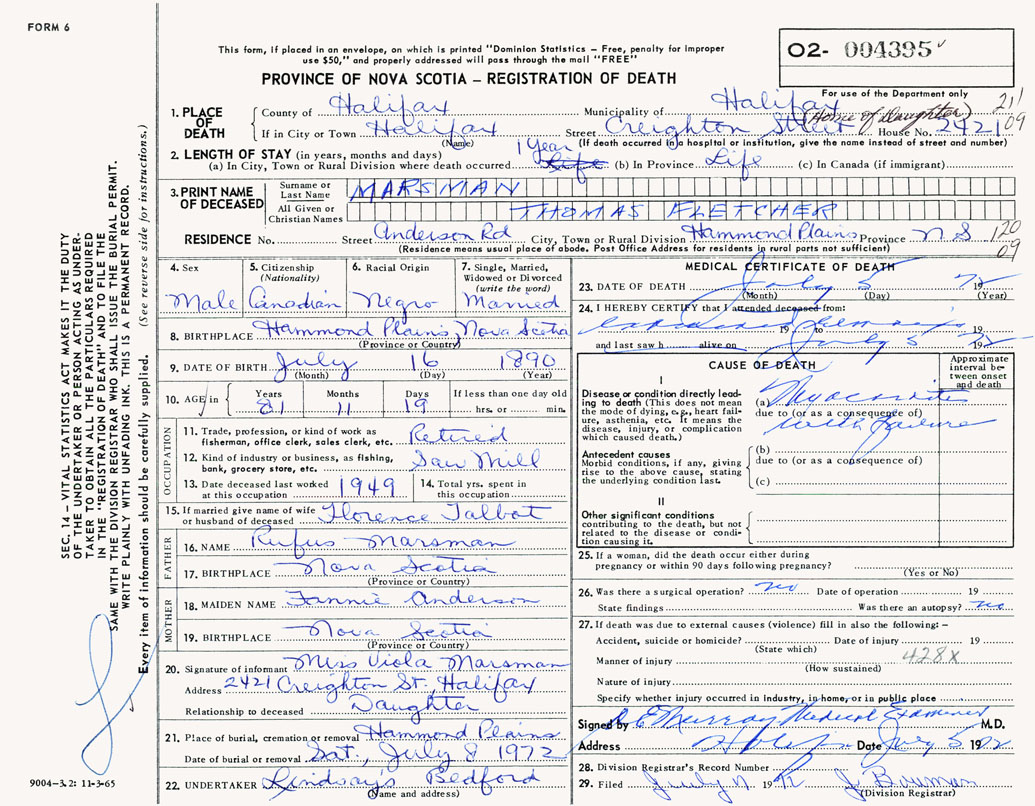 FORM 6
This form, if placed in an envelope, on which is printed "Dominion Statistics – Free, penalty for improper
use $50," and properly addressed will pass through the mail "FREE"
O2- 004395
PROVINCE OF NOVA SCOTIA – REGISTRATION OF DEATH
For use of the Department only
211
09
1. PLACE OF DEATH
County of Halifax Municipality of Halifax
(Home of Daughter)
If in City or Town Halifax Street Creighton Street House No. 2421
(Name) (If death occurred in a hospital or institution, give the name instead of street and number)
2. LENGTH OF STAY (in years, months and days) 1 Year
(a) In City, Town or Rural Division where death occurred Life (b) In Province Life (c) In Canada (if immigrant)
3. PRINT NAME OF DECEASED
Surname or Last Name MARSMAN
All Given or Christian Names THOMAS FLETCHER
RESIDENCE No. Street Anderson Rd City, Town or Rural Division Hammond Plains Province N S
120
09
(Residence means usual place of abode. Post Office Address for residents in rural parts not sufficient)
4. Sex
Male
5. Citizenship
(Nationality)
Canadian
6. Racial Origin
Negro
7. Single, Married,
Widowed or Divorced
(write the word)
Married
8. BIRTHPLACE Hammond Plains, Nova Scotia
(Province or Country)
9. DATE OF BIRTH July 16 1890
(Month) (Day) (Year)
10. AGE in Years Months Days If less than one day old
81 11 19 hrs. or min.
OCCUPATION
11. Trade, profession, or kind of work as
fisherman, office clerk, sales clerk, etc. Retired
12. Kind of industry or business, as fishing,
bank, grocery store, etc. Saw Mill
13. Date deceased last worked
at this occupation 1949
14. Total yrs. spent in
this occupation
15. If married give name of wife
or husband of deceased Florence Talbot
FATHER
16. NAME Rufus Marsman
17. BIRTHPLACE Nova Scotia
(Province or Country)
MOTHER
18. MAIDEN NAME Fannie Anderson
19. BIRTHPLACE Nova Scotia
(Province or Country)
20. Signature of informant Miss Viola Marsman
Address 2421 Creighton St. Halifax
Relationship to deceased Daughter
21. Place of burial, cremation or removal Hammond Plains
Date of burial or removal Sat, July 8 1972
22. UNDERTAKER Lindsay's Bedford
(Name and address)
MEDICAL CERTIFICATE OF DEATH
23. DATE OF DEATH July 5 1972
(Month) (Day) (Year)
24. I HEREBY CERTIFY that I attended deceased from:
19 to 19
and last saw h alive on July 5 19
CAUSE OF DEATH
Approximate
interval be-
tween onset
and death
I
Disease or condition directly lead-
ing to death (This does not mean
the mode of dying, e.g., heart fail-
ure, asthenia, etc. It means the
disease, injury, or complication
which caused death.)
(a) Myocarditis
due to (or as a consequence of)
with failure
Antecedent causes
Morbid conditions, if any, giving
rise to the above cause, stating
the underlying condition last.
(b)
due to (or as a consequence of)
(c)
II
Other significant conditions
contributing to the death, but not
related to the disease or condi-
tion causing it.
25. If a woman, did the death occur either during
pregnancy or within 90 days following pregnancy?
(Yes or No)
26. Was there a surgical operation? no Date of operation 19
State findings Was there an autopsy? no
27. If death was due to external causes (violence) fill in also the following: –
Accident, suicide or homicide? Date of injury 19
(State which)
428X
Manner of injury
(How sustained)
Nature of injury
Specify whether injury occurred in industry, in home, or in public place
Signed by Murray Medical Examiner M.D.
Address Date July 5 1972
28. Division Registrar's Record Number
29. Filed July 11 1972 J Bowman
(Division Registrar)
SEC. 14 – VITAL STATISTICS ACT MAKES IT THE DUTY
OF THE UNDERTAKER OR PERSON ACTING AS UNDER-
TAKER TO OBTAIN ALL THE PARTICULARS REQUIRED
IN THE "REGISTRATION OF DEATH" AND TO FILE THE
SAME WITH THE DIVISION REGISTRAR WHO SHALL ISSUE THE BURIAL PERMIT.
WRITE PLAINLY WITH UNFADING INK. THIS IS A PERMANENT RECORD.
Every item of information should be carefully supplied. (See reverse side for instructions.)
9004-3.2: 11-3-65